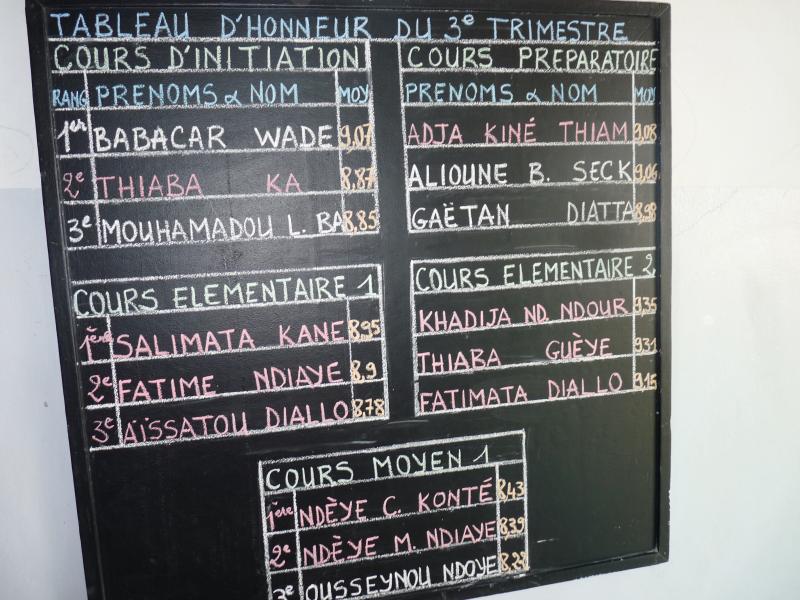 TABLEAU D'HONNEUR DU 3e TRIMESTRE
COURS D'INITIATION
RANG PRENOMS & NOM MOY
1er BABACAR WADE 9,07
2e THIABA KA 8,87
3e MOUHAMADOU L. BA 8,85
COURS PREPARATOIRE
PRENOMS & NOM MOY
ADJA KINÉ THIAM 9,08
ALIOUNE B. SECK 9,06
GAËTAN DIATTA 8,98
COURS ELEMENTAIRE 1
1ère SALIMATA KANE 8,95
2e FATIME NDIAYE 8,9
3e AÏSSATOU DIALLO 8,78
COURS ELEMENTAIRE 2
KHADIJA ND. NDOUR 9,35
THIABA GUÈYE 9,31
FATIMATA DIALLO 9,15
COURS MOYEN 1
1ère NDÈYE C. KONTÉ 8,43
2e NDÈYE M. NDIAYE 8,39
3e OUSSEYNOU NDOYE 8,28